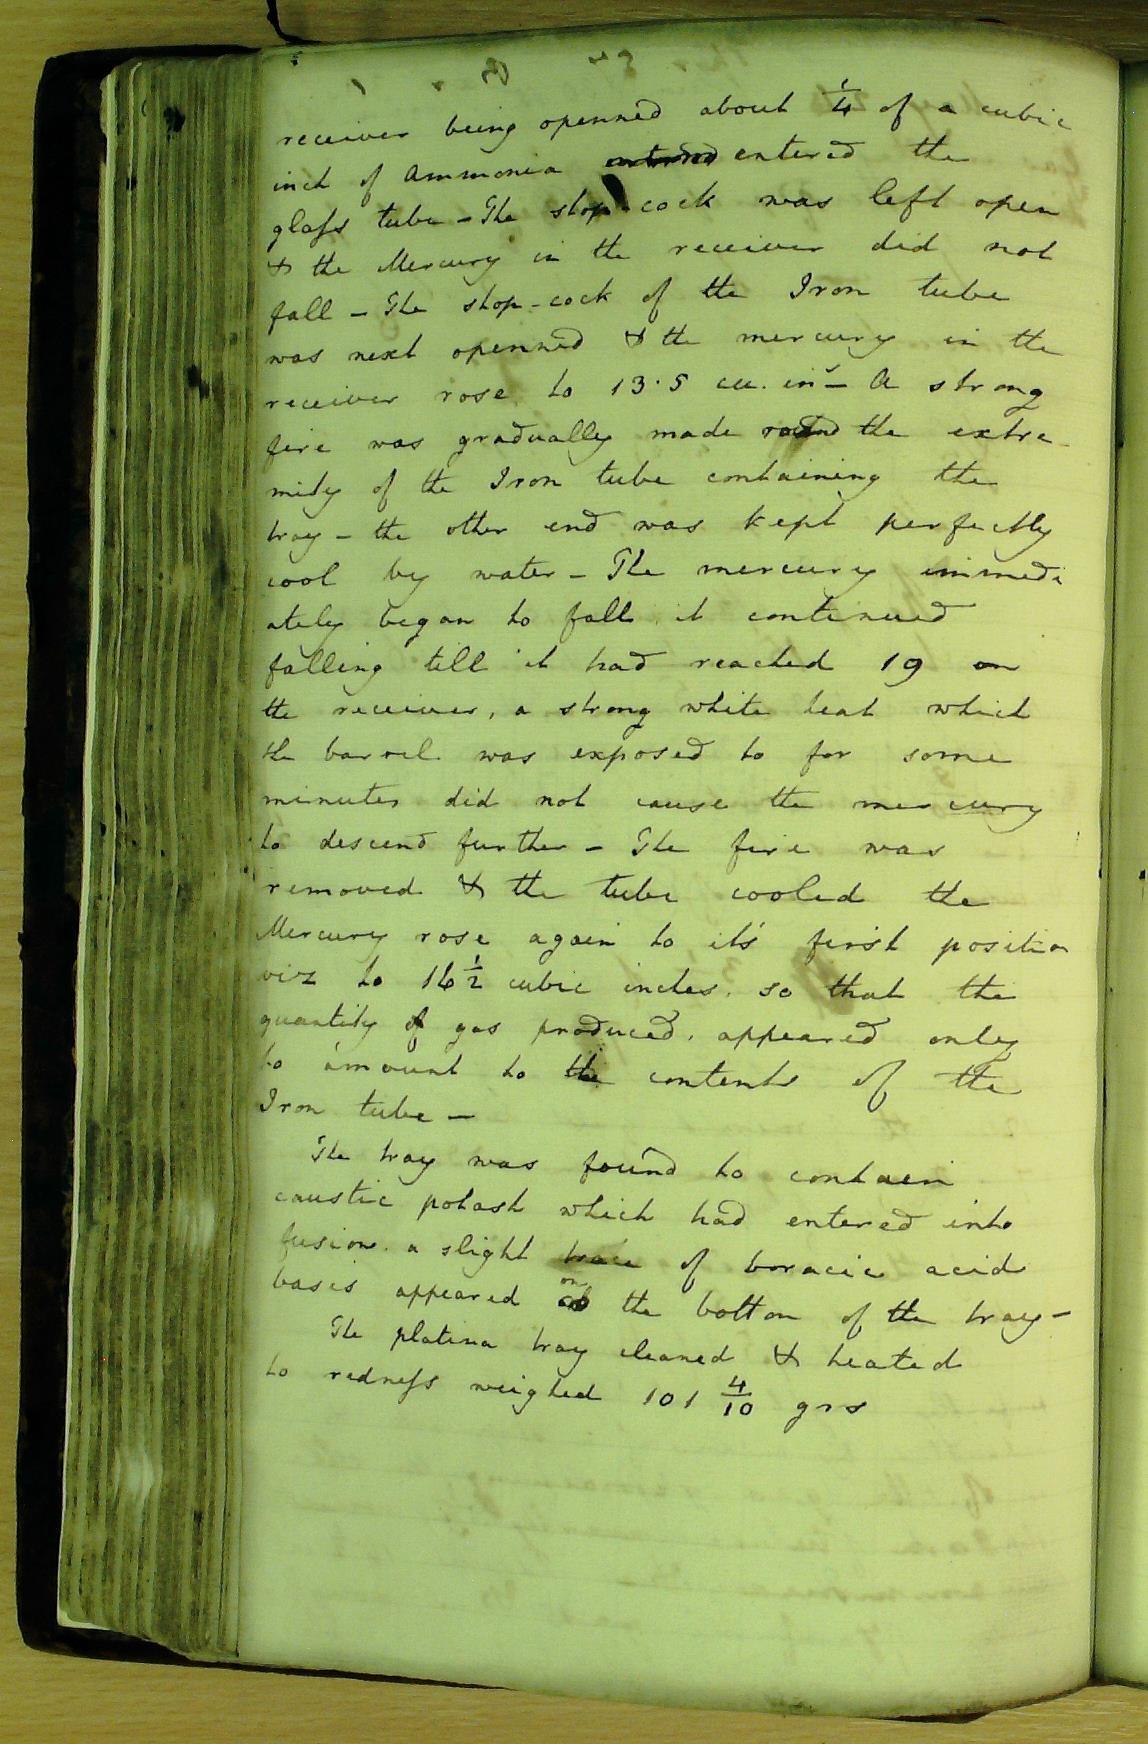 receiver being openned about 1/4 of a cubic
inch of Ammonia entered entered the
glass tube - The stop-cock was left open
& the Mercury in the receiver did not
fall - The stop-cock of the Iron tube
was next openned & the mercury in the
receiver rose to 13.5 cu. in - A strong
fire was gradually made round the extre-
mity of the Iron tube containing the
tray - the other end was kept perfectly
cool by water - The mercury immedi
ately began to fall it continued
falling till it had reached 19 on
the receiver, a strong white heat which
the barrel was exposed to for some
minutes did not cause the mercury
to descend further - The fire was
removed & the tube cooled the
Mercury rose again to it's first position
viz to 16 1/2 cubic inches. so that the
quantity of gas produced, appeared only
to amount to the contents of the
Iron tube -
The tray was found to contain
caustic potash which had entered into
fusion. a slight trace of boracic acid
basis appeared on the bottom of the tray -
The platina tray cleaned & heated
to redness weighed 101 4/10 grs